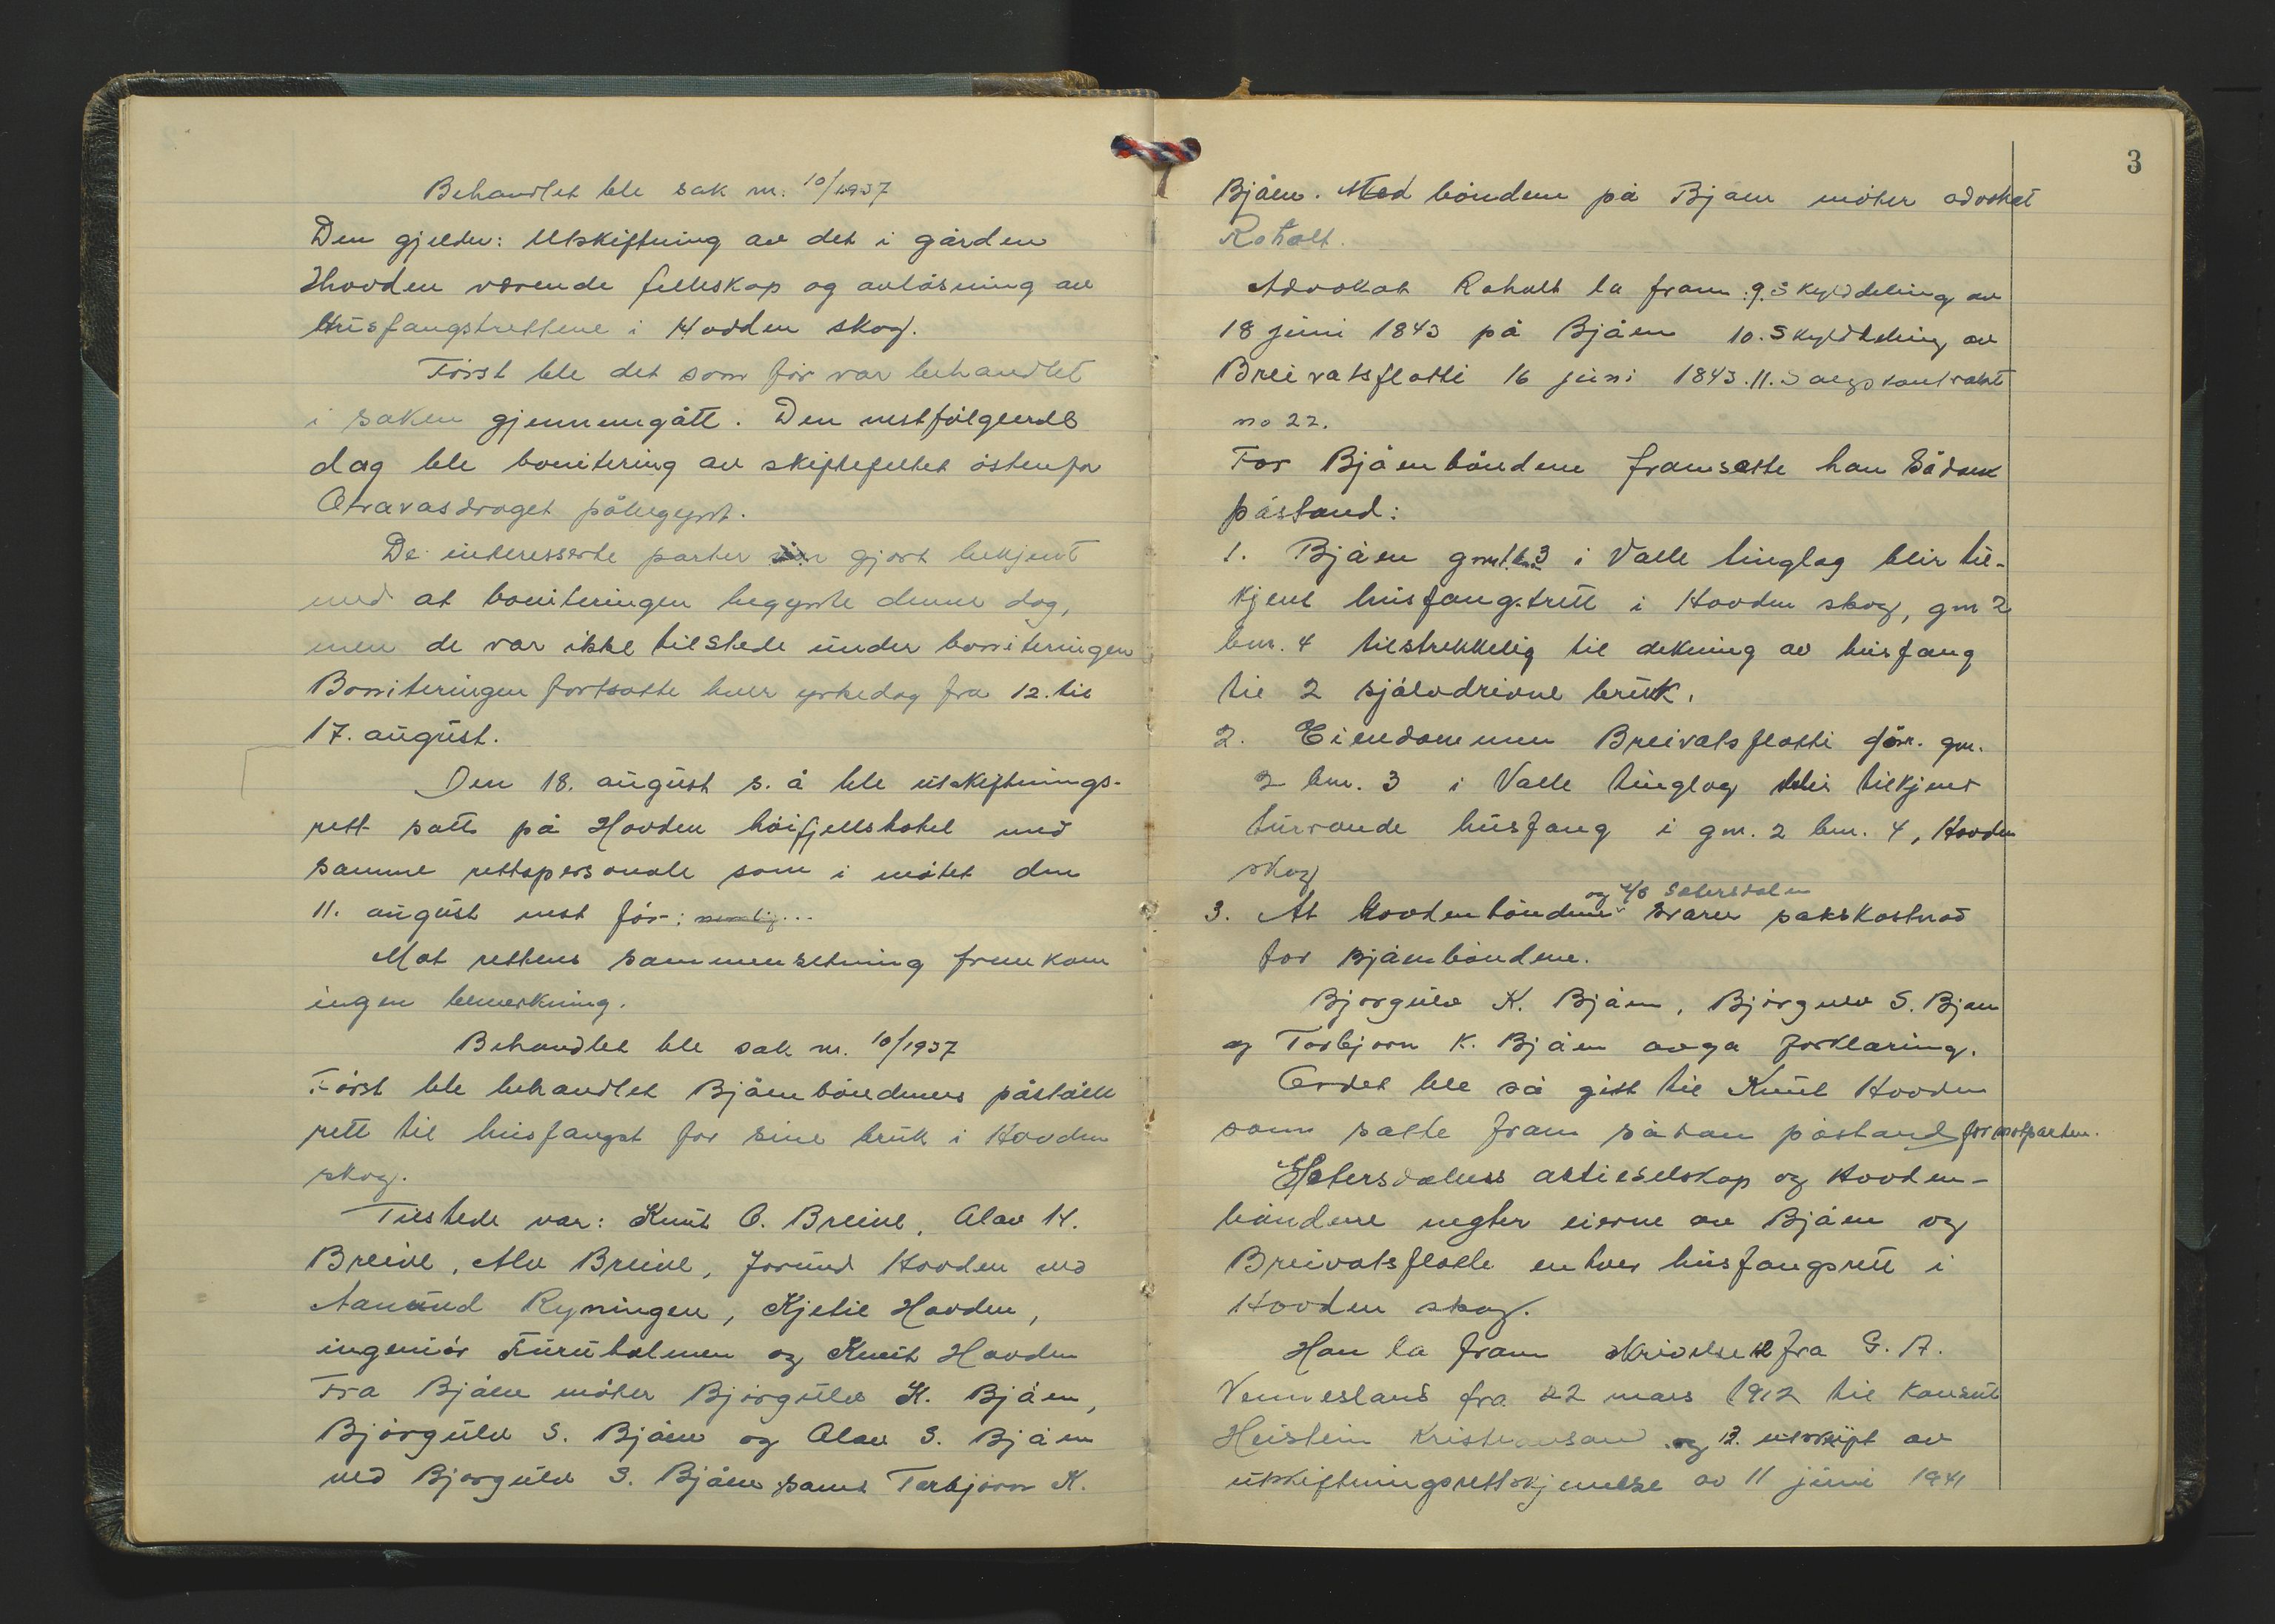 Behandlet ble sak nr. 10/1937
Den gjelder: Utskiftning av det i gården
Hovden værende felleskap og avløsning av
husfangstrettene i Hovden skog.
Først ble det som før var behandlet
i saken gjennemgått. Den nestfølgende
dag ble bonitering av skiftefeltet østenfor
Otravasdraget påbegynt.
De interesserte parter var gjort bekjent
med at boniteringen begynte denne dag,
men de var ikke tilstede under boniteringen
Boniteringen fortsatte hver yrkedag fra 12. til
17. august.
Den 18. august s. å ble utskiftnings-
rett satt på Hovden høifjellshotel med
samme rettspersonale som i møtet den
11. august nest før:
Mot rettens sammensetning fremkom
ingen bemerkning.
Behandlet ble sak nr. 10/1937
Først ble behandlet Bjåenbøndenes påståtte
rett til husfangst for sine bruk i Hovden
skog.
Tilstede var: Knut O. Breive, Olav H.
Breive, Alv Breive, Jorund Hovden ved
Aanund Ryningen, Kjetil Hovden,
ingeniør Furuholmen og Knut Hovden
Fra Bjåen møter Bjørgulv K. Bjåen,
Bjørgulv S. Bjåen og Olav S. Bjåen
ved Bjørgulv S. Bjåen samt Torbjørn K.
3
Bjåen. Med bøndene på Bjåen møter advokat
Roholt.
Advokat Roholt la fram: 9. Skylddeling av
18 juni 1843 på Bjåen 10. Skylddeling av
Breivatsflotti 16 juni 1843. 11. Salgskontrakt
no 22.
For Bjåenbøndene framsatte han sådan
påstand:
1. Bjåen gnr. 1 bnr. 3 i Valle tinglag blir til-
kjent husfangstrett i Hovden skog, gnr 2
bnr. 4 tilstrekkelig til dekning av husfang
til 2 sjølvdrivne bruk.
2. Eiendommen Breivatsflotti gnr.
2 bnr. 3 i Valle tinglag blir tilkjent
turvande husfang i gnr. 2 bnr. 4, Hovden
skog
og A/S Setersdalen
3. At Hovdenbøndene svarer sakskostnad
for Bjåenbøndene.
Bjørgulv K. Bjåen, Bjørgulv S. Bjåen
og Torbjørn K. Bjåen avga forklaring.
Ordet ble så gitt til Knut Hovden
som satte fram sådan påstand for motparten.
Setersdalens aktieselskap og Hovden-
bøndene negter eierne av Bjåen og
Breivatsflotti enhver husfangsrett i
Hovden skog.
Han la fram skrivelse 12 fra G. A.
Vennesland fra 22 mars 1912 til konsul
Heistein Kristiansand og 13. utskrift av
utskiftningsrettskjennelse av 11 juni 1941